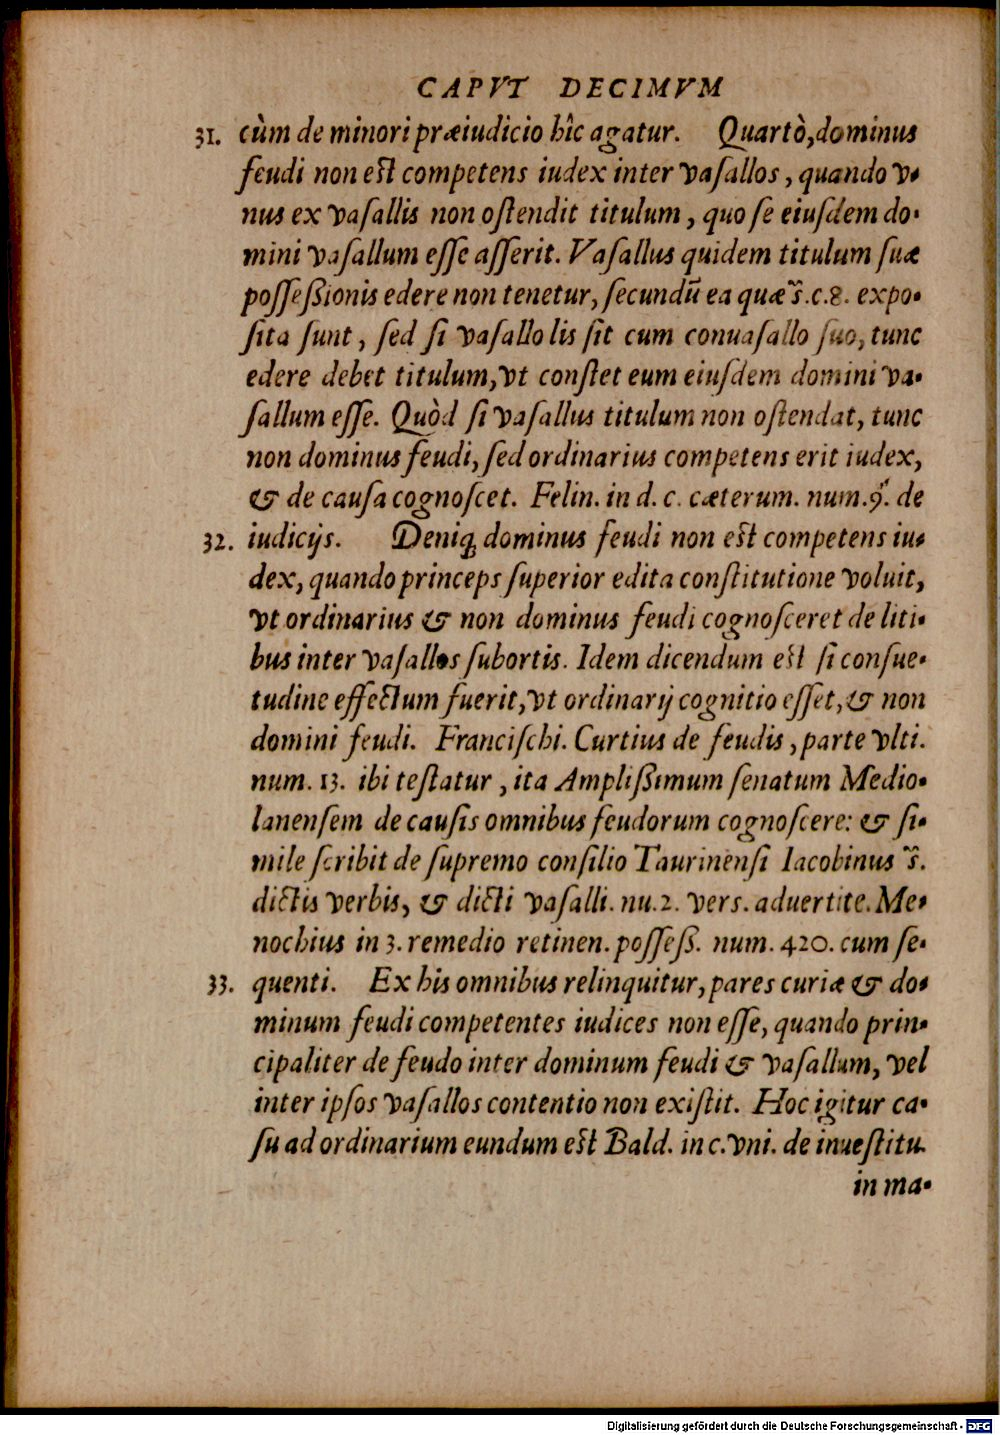 CAPVT DECIMVM
31. cùm de minori præiudicio hîc agatur. Quartò, dominus
feudi non est competens iudex inter vaſallos, quando v-
nus ex vaſallis non oſtendit titulum, quo ſe eiuſdem do-
mini vaſallum eſſe aſſerit. Vaſallus quidem titulum ſuæ
poſſeßionis edere non tenetur, ſecundū ea quæ s̃.c.8. expo-
ſita ſunt, ſed ſi vaſallo lis ſit cum conuaſallo ſuo, tunc
edere debet titulum, vt conſtet eum eiuſdem domini va-
ſallum eſſe. Quòd ſi vaſallus titulum non oſtendat, tunc
non dominus feudi, ſed ordinarius competens erit iudex,
& de cauſa cognoſcet. Felin. in d. c. cæterum. num.9. de
32. iudicijs. Deniq; dominus feudi non est competens iu-
dex, quando princeps ſuperior edita conſtitutione voluit,
vt ordinarius & non dominus feudi cognoſceret de liti-
bus inter vaſallos ſubortis. Idem dicendum est ſi conſue-
tudine effectum fuerit, vt ordinarij cognitio eſſet, & non
domini feudi. Franciſchi. Curtius de feudis, parte vlti.
num. 13. ibi teſtatur, ita Amplißimum ſenatum Medio-
lanenſem de cauſis omnibus feudorum cognoſcere: & ſi-
mile ſcribit de ſupremo conſilio Taurinenſi Iacobinus s̃.
dictis verbis, & dicti vaſalli. nu.2. verſ. aduertite. Me-
nochius in 3. remedio retinen. poſſeß. num. 420. cum ſe-
33. quenti. Ex his omnibus relinquitur, pares curiæ & do-
minum feudi competentes iudices non eſſe, quando prin-
cipaliter de feudo inter dominum feudi & vaſallum, vel
inter ipſos vaſallos contentio non exiſtit. Hoc igitur ca-
ſu ad ordinarium eundum est Bald. in c. vni. de inueſtitu.
in ma-
Digitalisierung gefördert durch die Deutsche Forschungsgemeinschaft - DFG